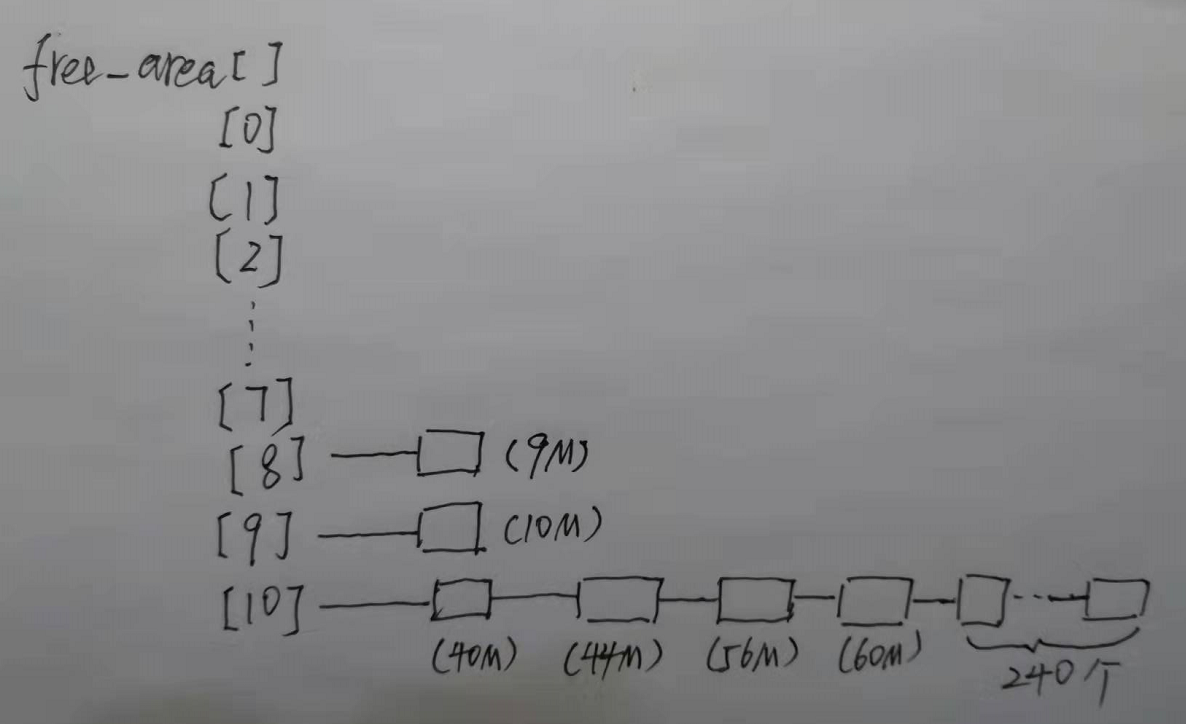 free_area[]
[0]
[1]
[2]
[7]
[8] (9M)
[9] (10M)
[10]
(40M) (44M) (56M) (60M)
240个